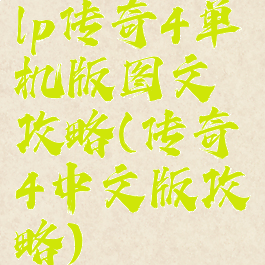 lp传奇4单
机版图文
攻略(传奇
4中文版攻
略)